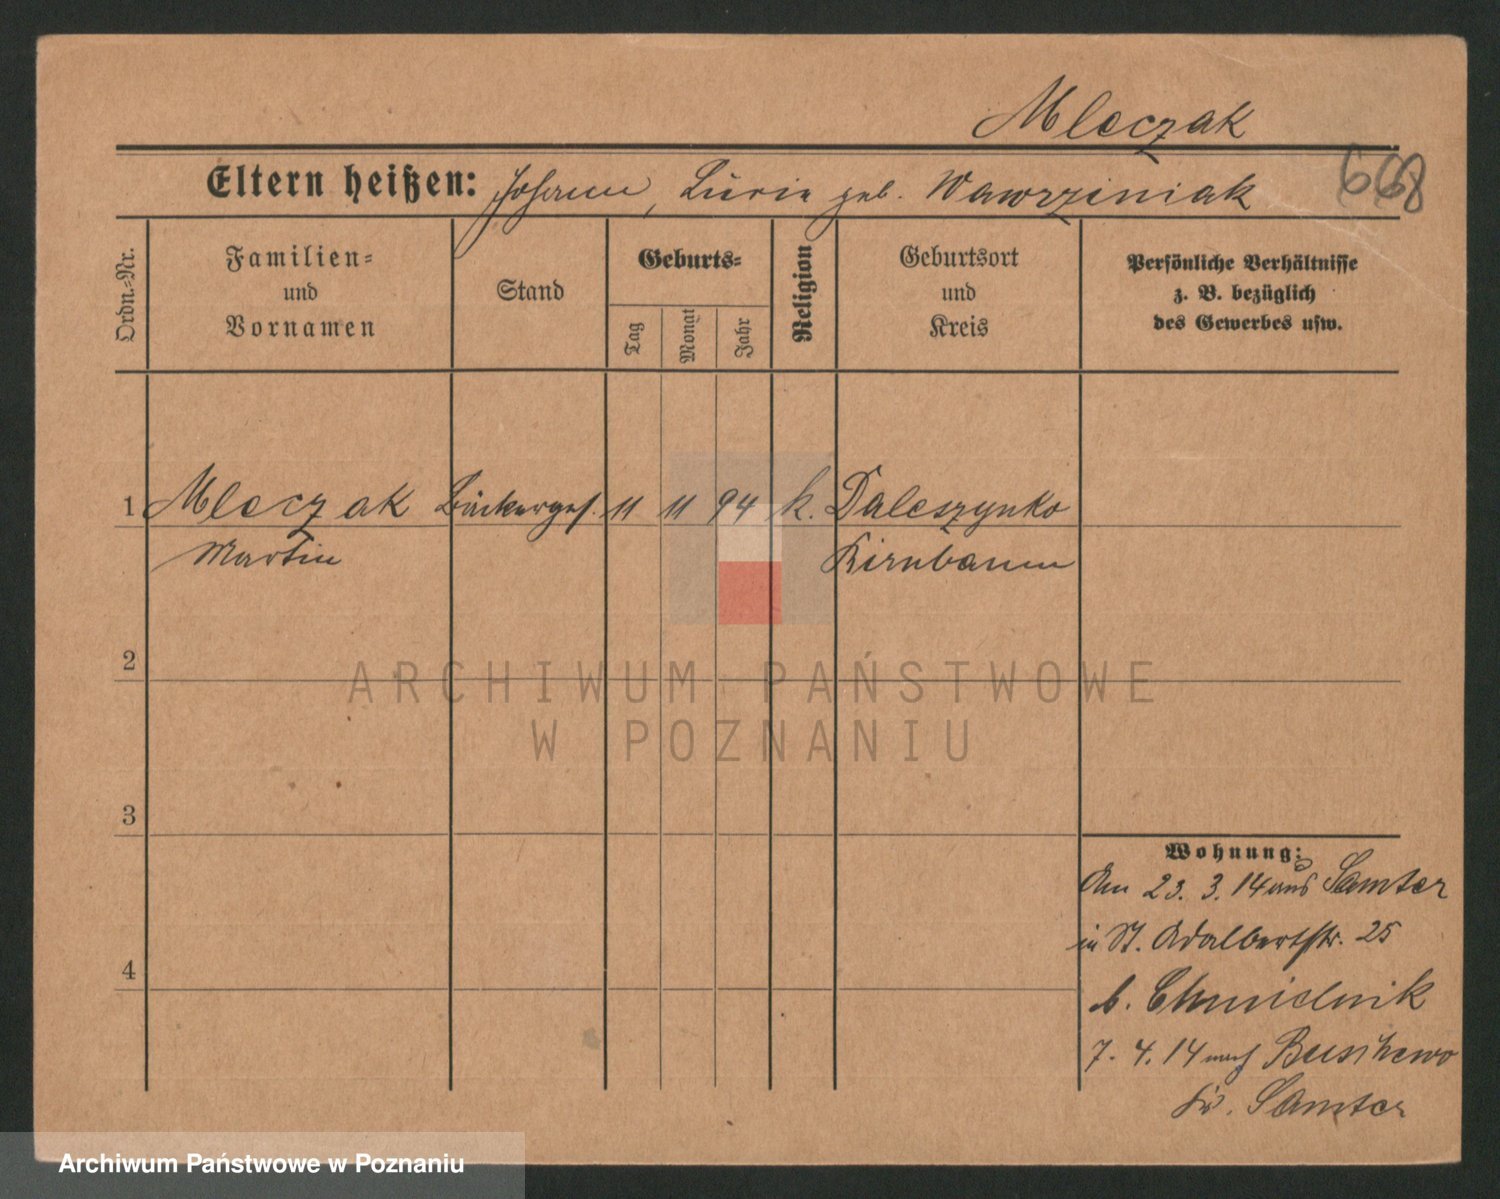 Mleczak
668
Eltern heißen: Johann, Lucia geb. Wawrziniak
Ordn.-Nr.
Familien-
und
Vornamen
Stand
Geburts-
Tag
Monat
Jahr
Religion
Geburtsort
und
Kreis
Persönliche Verhältnisse
z. B. bezüglich
des Gewerbes usw.
1 Mleczak Bäckerges. 11 11 94 k. Daleszynko
Martin Birnbaum
2
3
4
Wohnung:
Am 23. 3. 14 aus Samter
in St. Adalbertstr. 25
b. Chmielnik
7. 4. 14 nach
Kr. Samter
ARCHIWUM PAŃSTWOWE
W POZNANIU
Archiwum Państwowe w Poznaniu